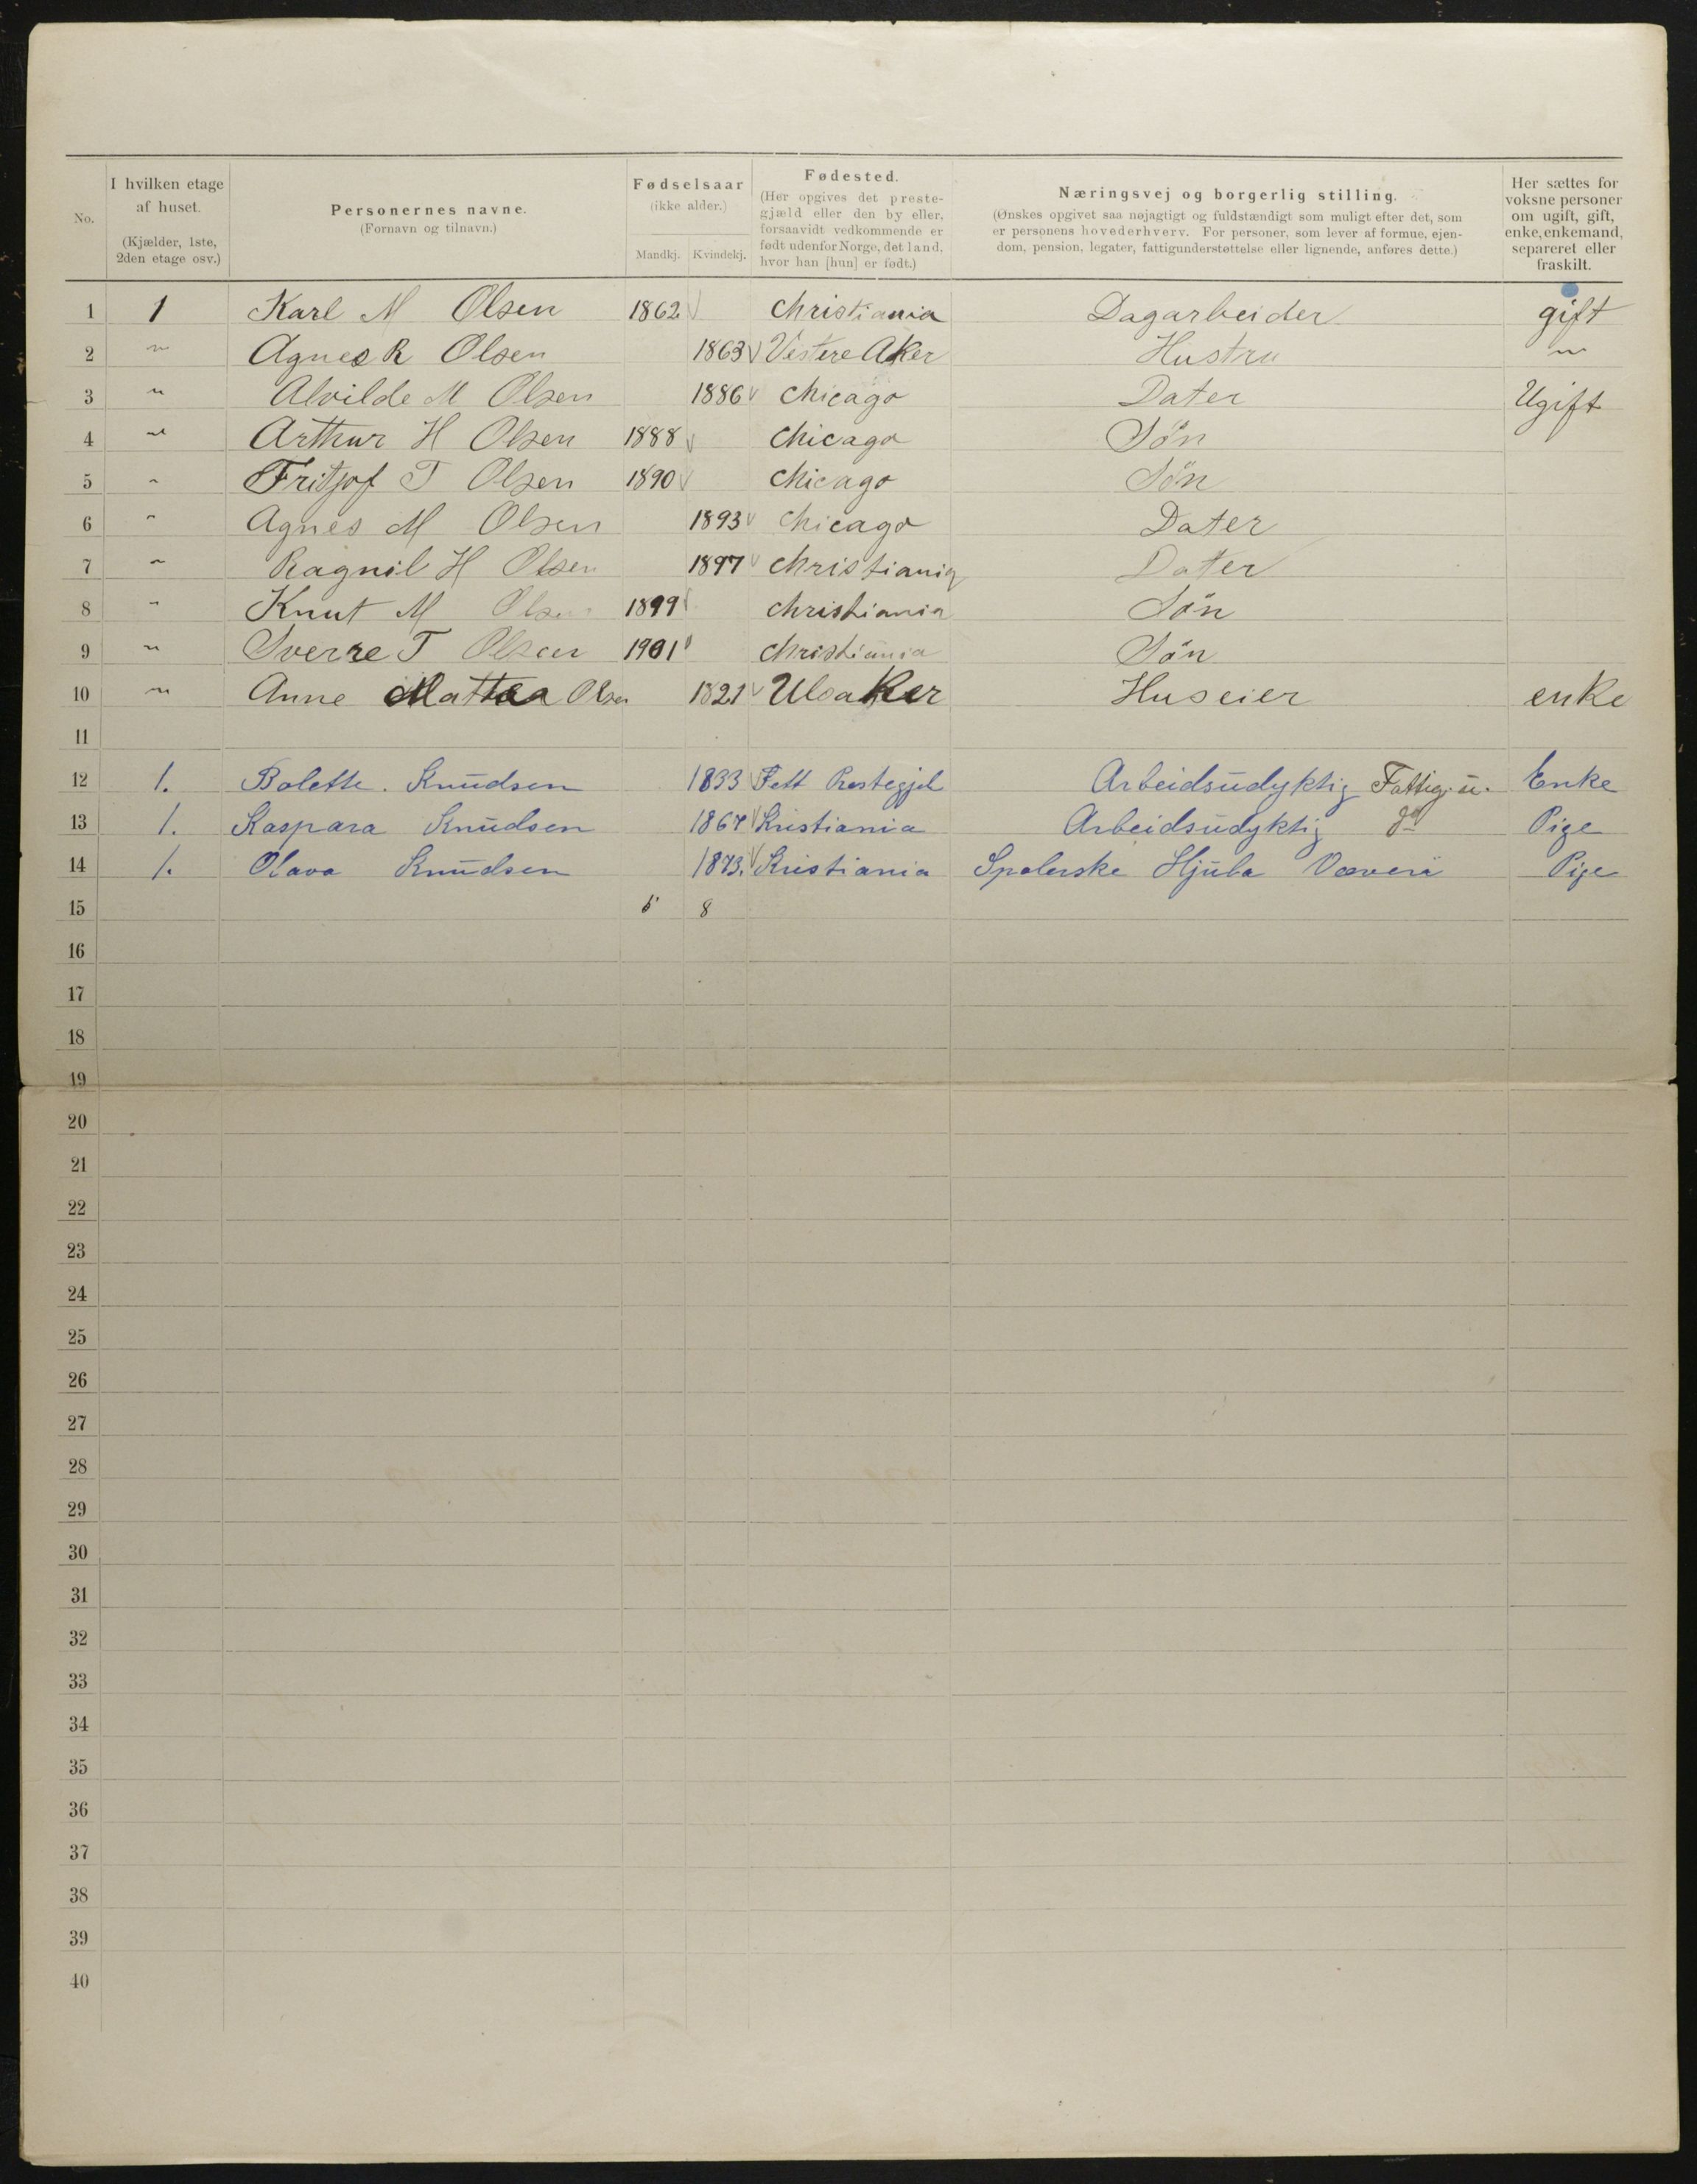 No.
I hvilken etage af huset.
(Kjælder, 1ste, 2den etage osv.)
Personernes navne.
(Fornavn og tilnavn.)
Fødselsaar
(ikke alder.)
Mandkj. Kvindekj.
Fødested.
(Her opgives det preste-
gjæld eller den by eller,
forsaavidt vedkommende er
født udenfor Norge, det land,
hvor han [hun] er født.)
Næringsvej og borgerlig stilling.
(Ønskes opgivet saa nøjagtigt og fuldstændigt som muligt efter det, som
er personens hovederhverv. For personer, som lever af formue, ejen-
dom, pension, legater, fattigunderstøttelse eller lignende, anføres dette.)
Her sættes for
voksne personer
om ugift, gift,
enke, enkemand,
separeret eller
fraskilt.
1 1 Karl M Olsen 1862 Christiania Dagarbeider gift
2 " Agnes R Olsen 1863 Vestere Aker Hustru "
3 " Alvilde M Olsen 1886 Chicago Dater Ugift
4 " Arthur H Olsen 1888 Chicago Søn
5 " Fritjof T Olsen 1890 Chicago Søn
6 " Agnes M Olsen 1893 Chicago Dater
7 " Ragnil H Olsen 1897 Christiania Dater
8 " Knut M Olsen 1899 Christiania Søn
9 " Sverre T Olsen 1901 Christiania Søn
10 " Anne Mathea Olsen 1821 Ulsaker Huseier enke
11
12 1. Bolette. Knudsen 1833 Fett Prestegjel Arbeidsudyktig Fattig.u. Enke
13 1. Kaspara Knudsen 1867 Kristiania Arbeidsudyktig do Pige
14 1. Olava Knudsen 1873. Kristiania Spolerske Hjula Væveri Pige
15 5 8
16
17
18
19
20
21
22
23
24
25
26
27
28
29
30
31
32
33
34
35
36
37
38
39
40